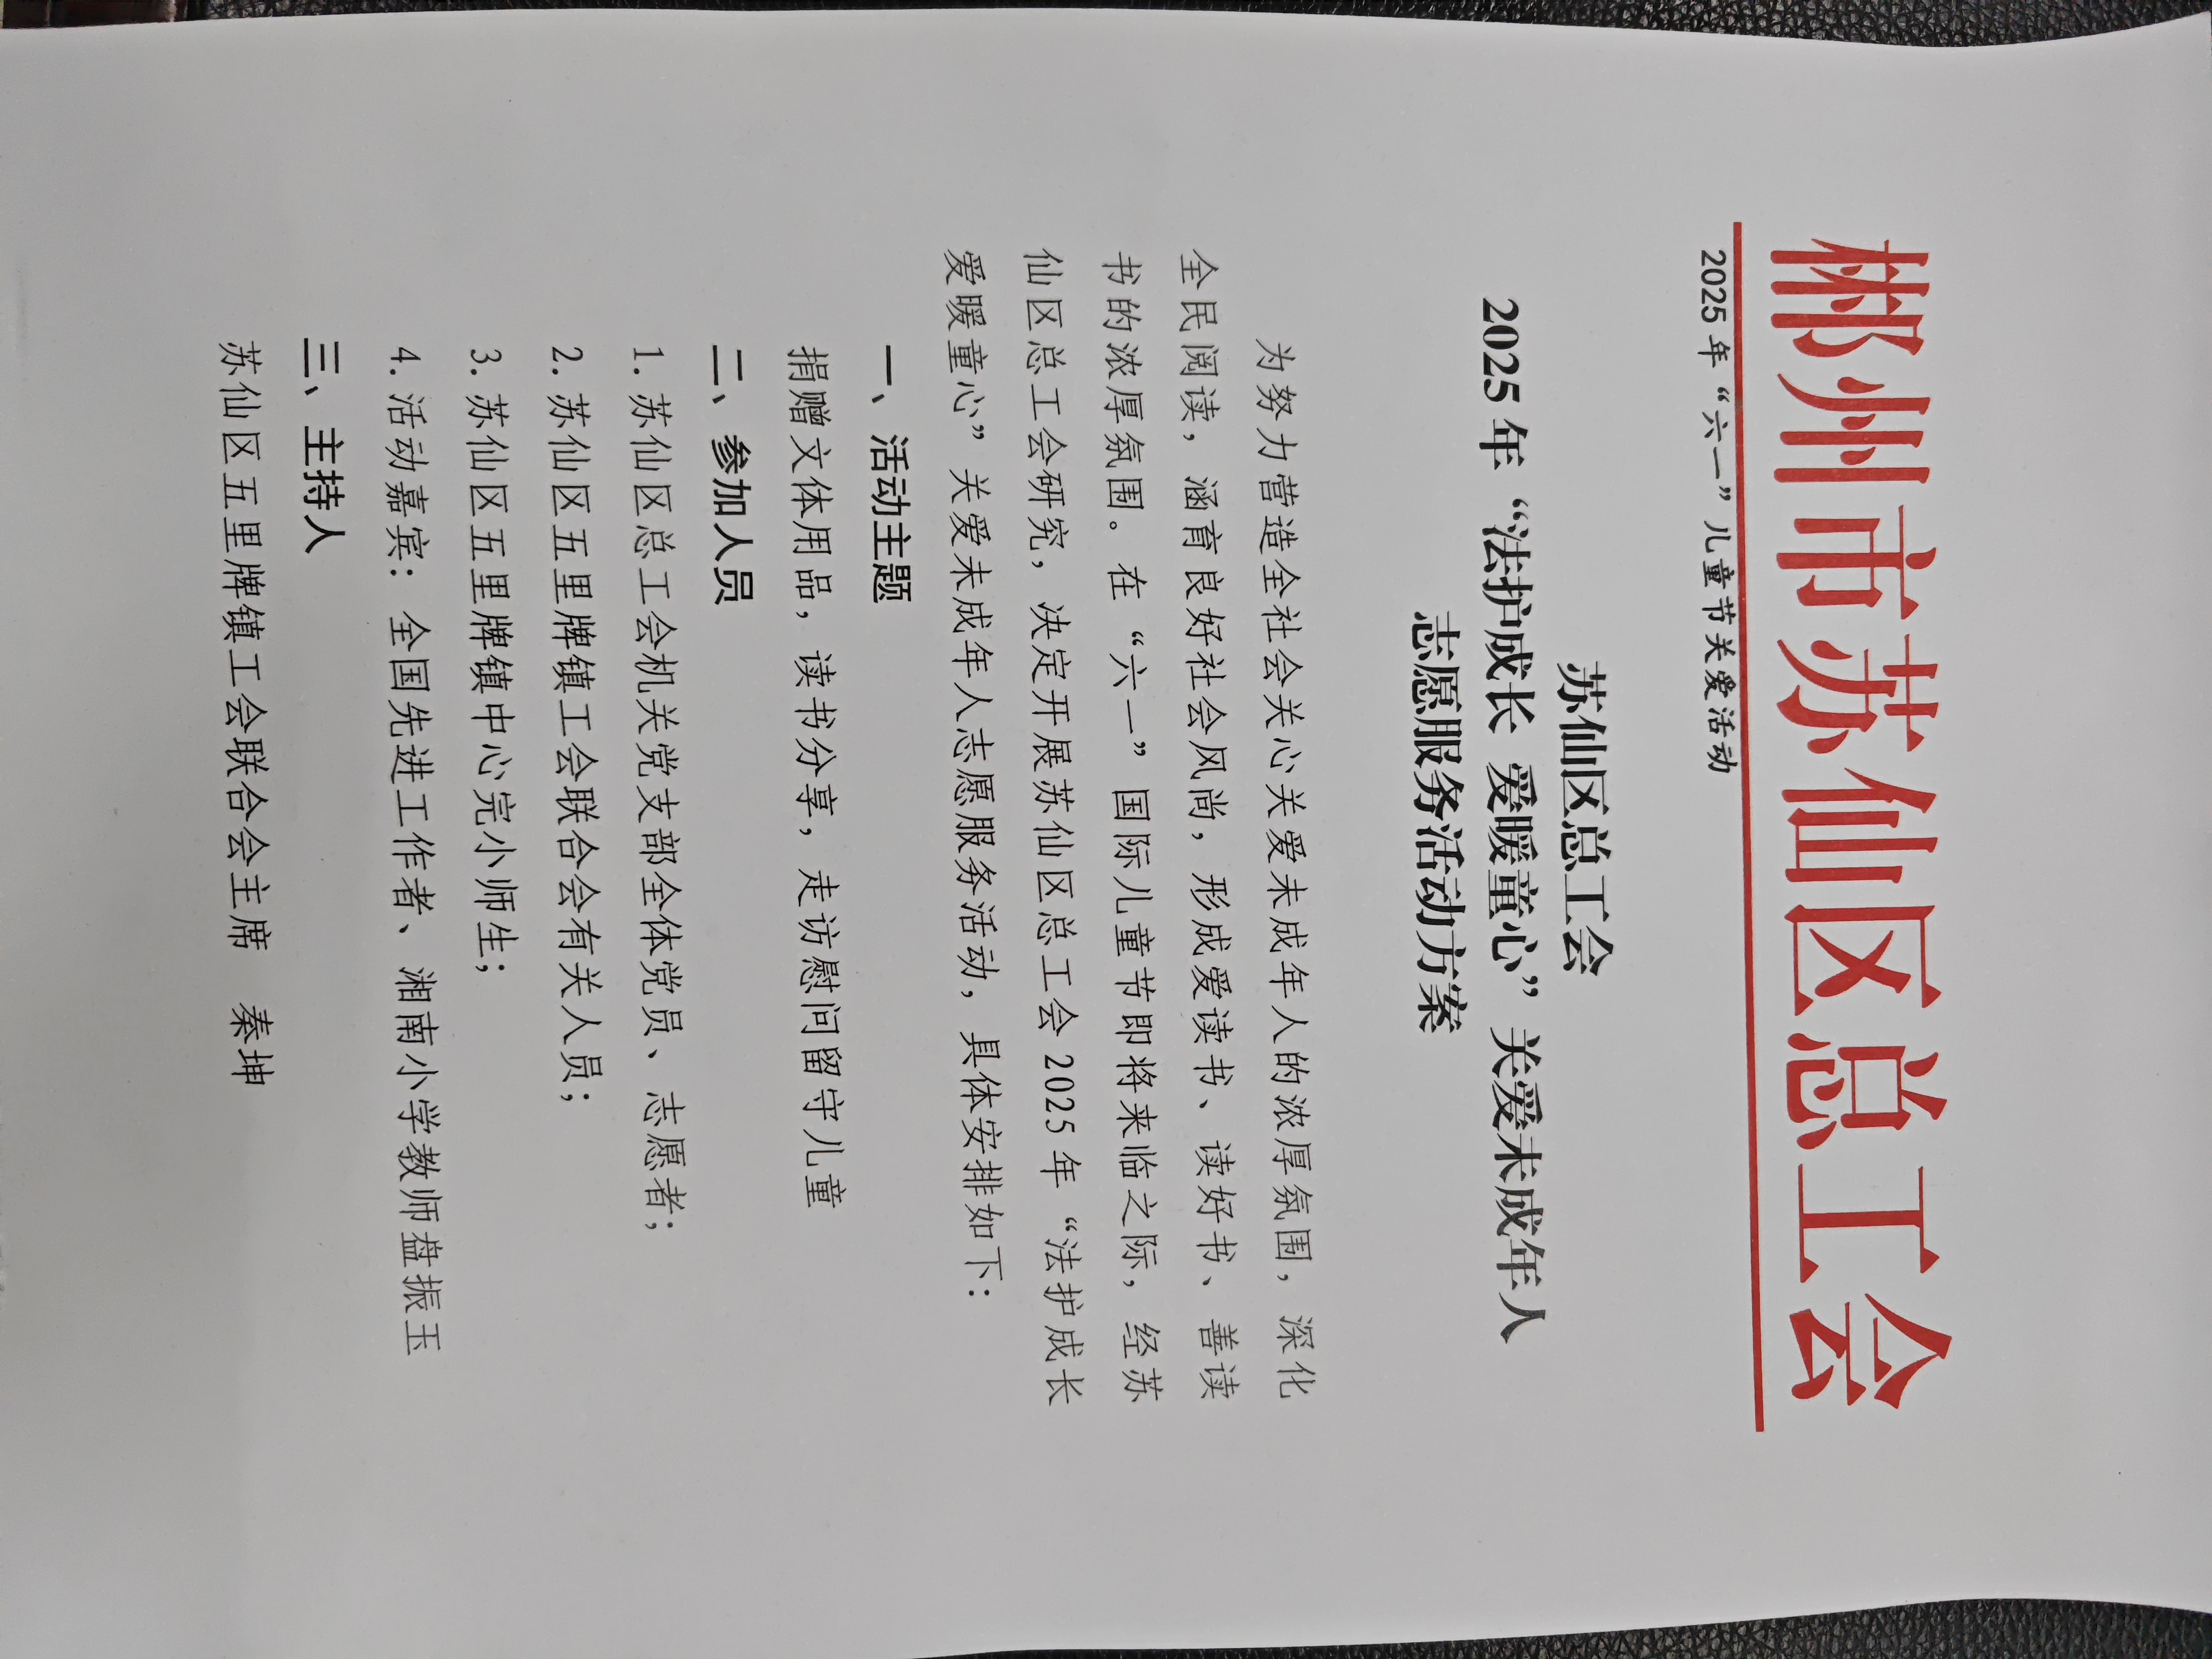 郴州市苏仙区总工会
2025年“六一”儿童节关爱活动
苏仙区总工会
2025年“法护成长 爱暖童心”关爱未成年人
志愿服务活动方案
为努力营造全社会关心关爱未成年人的浓厚氛围，深化
全民阅读，涵育良好社会风尚，形成爱读书、读好书、善读
书的浓厚氛围。在“六一”国际儿童节即将来临之际，经苏
仙区总工会研究，决定开展苏仙区总工会2025年“法护成长
爱暖童心”关爱未成年人志愿服务活动，具体安排如下：
一、活动主题
捐赠文体用品，读书分享，走访慰问留守儿童
二、参加人员
1.苏仙区总工会机关党支部全体党员、志愿者；
2.苏仙区五里牌镇工会联合会有关人员；
3.苏仙区五里牌镇中心完小师生；
4.活动嘉宾：全国先进工作者、湘南小学教师盘振玉
三、主持人
苏仙区五里牌镇工会联合会主席 秦坤